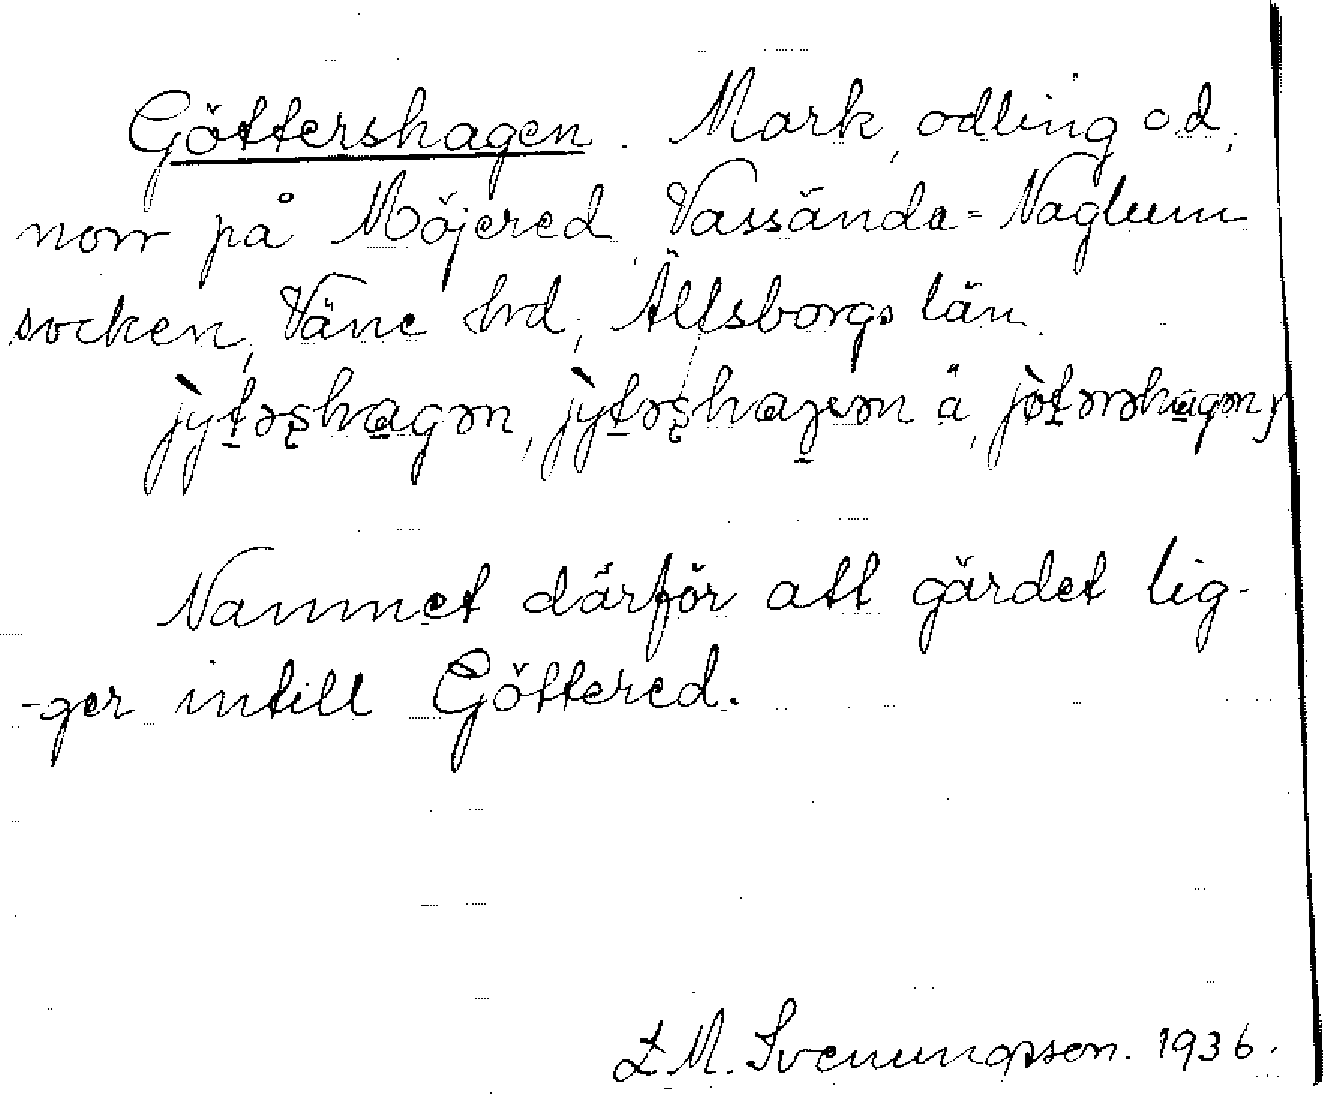 Göttershagen. Mark, odling o.d.
norr på Möjered, Vassända-Naglum
socken, Väne hrd, Älfsborgs län.
j̀yt̠əʂha̠gən, j̀yt̠əʂha̠ɟən å, j̀ɵt̠ərəha̠gən,
Namnet därför att gärdet lig-
-ger intill Göttered.
L.M. Svenungsson. 1936.